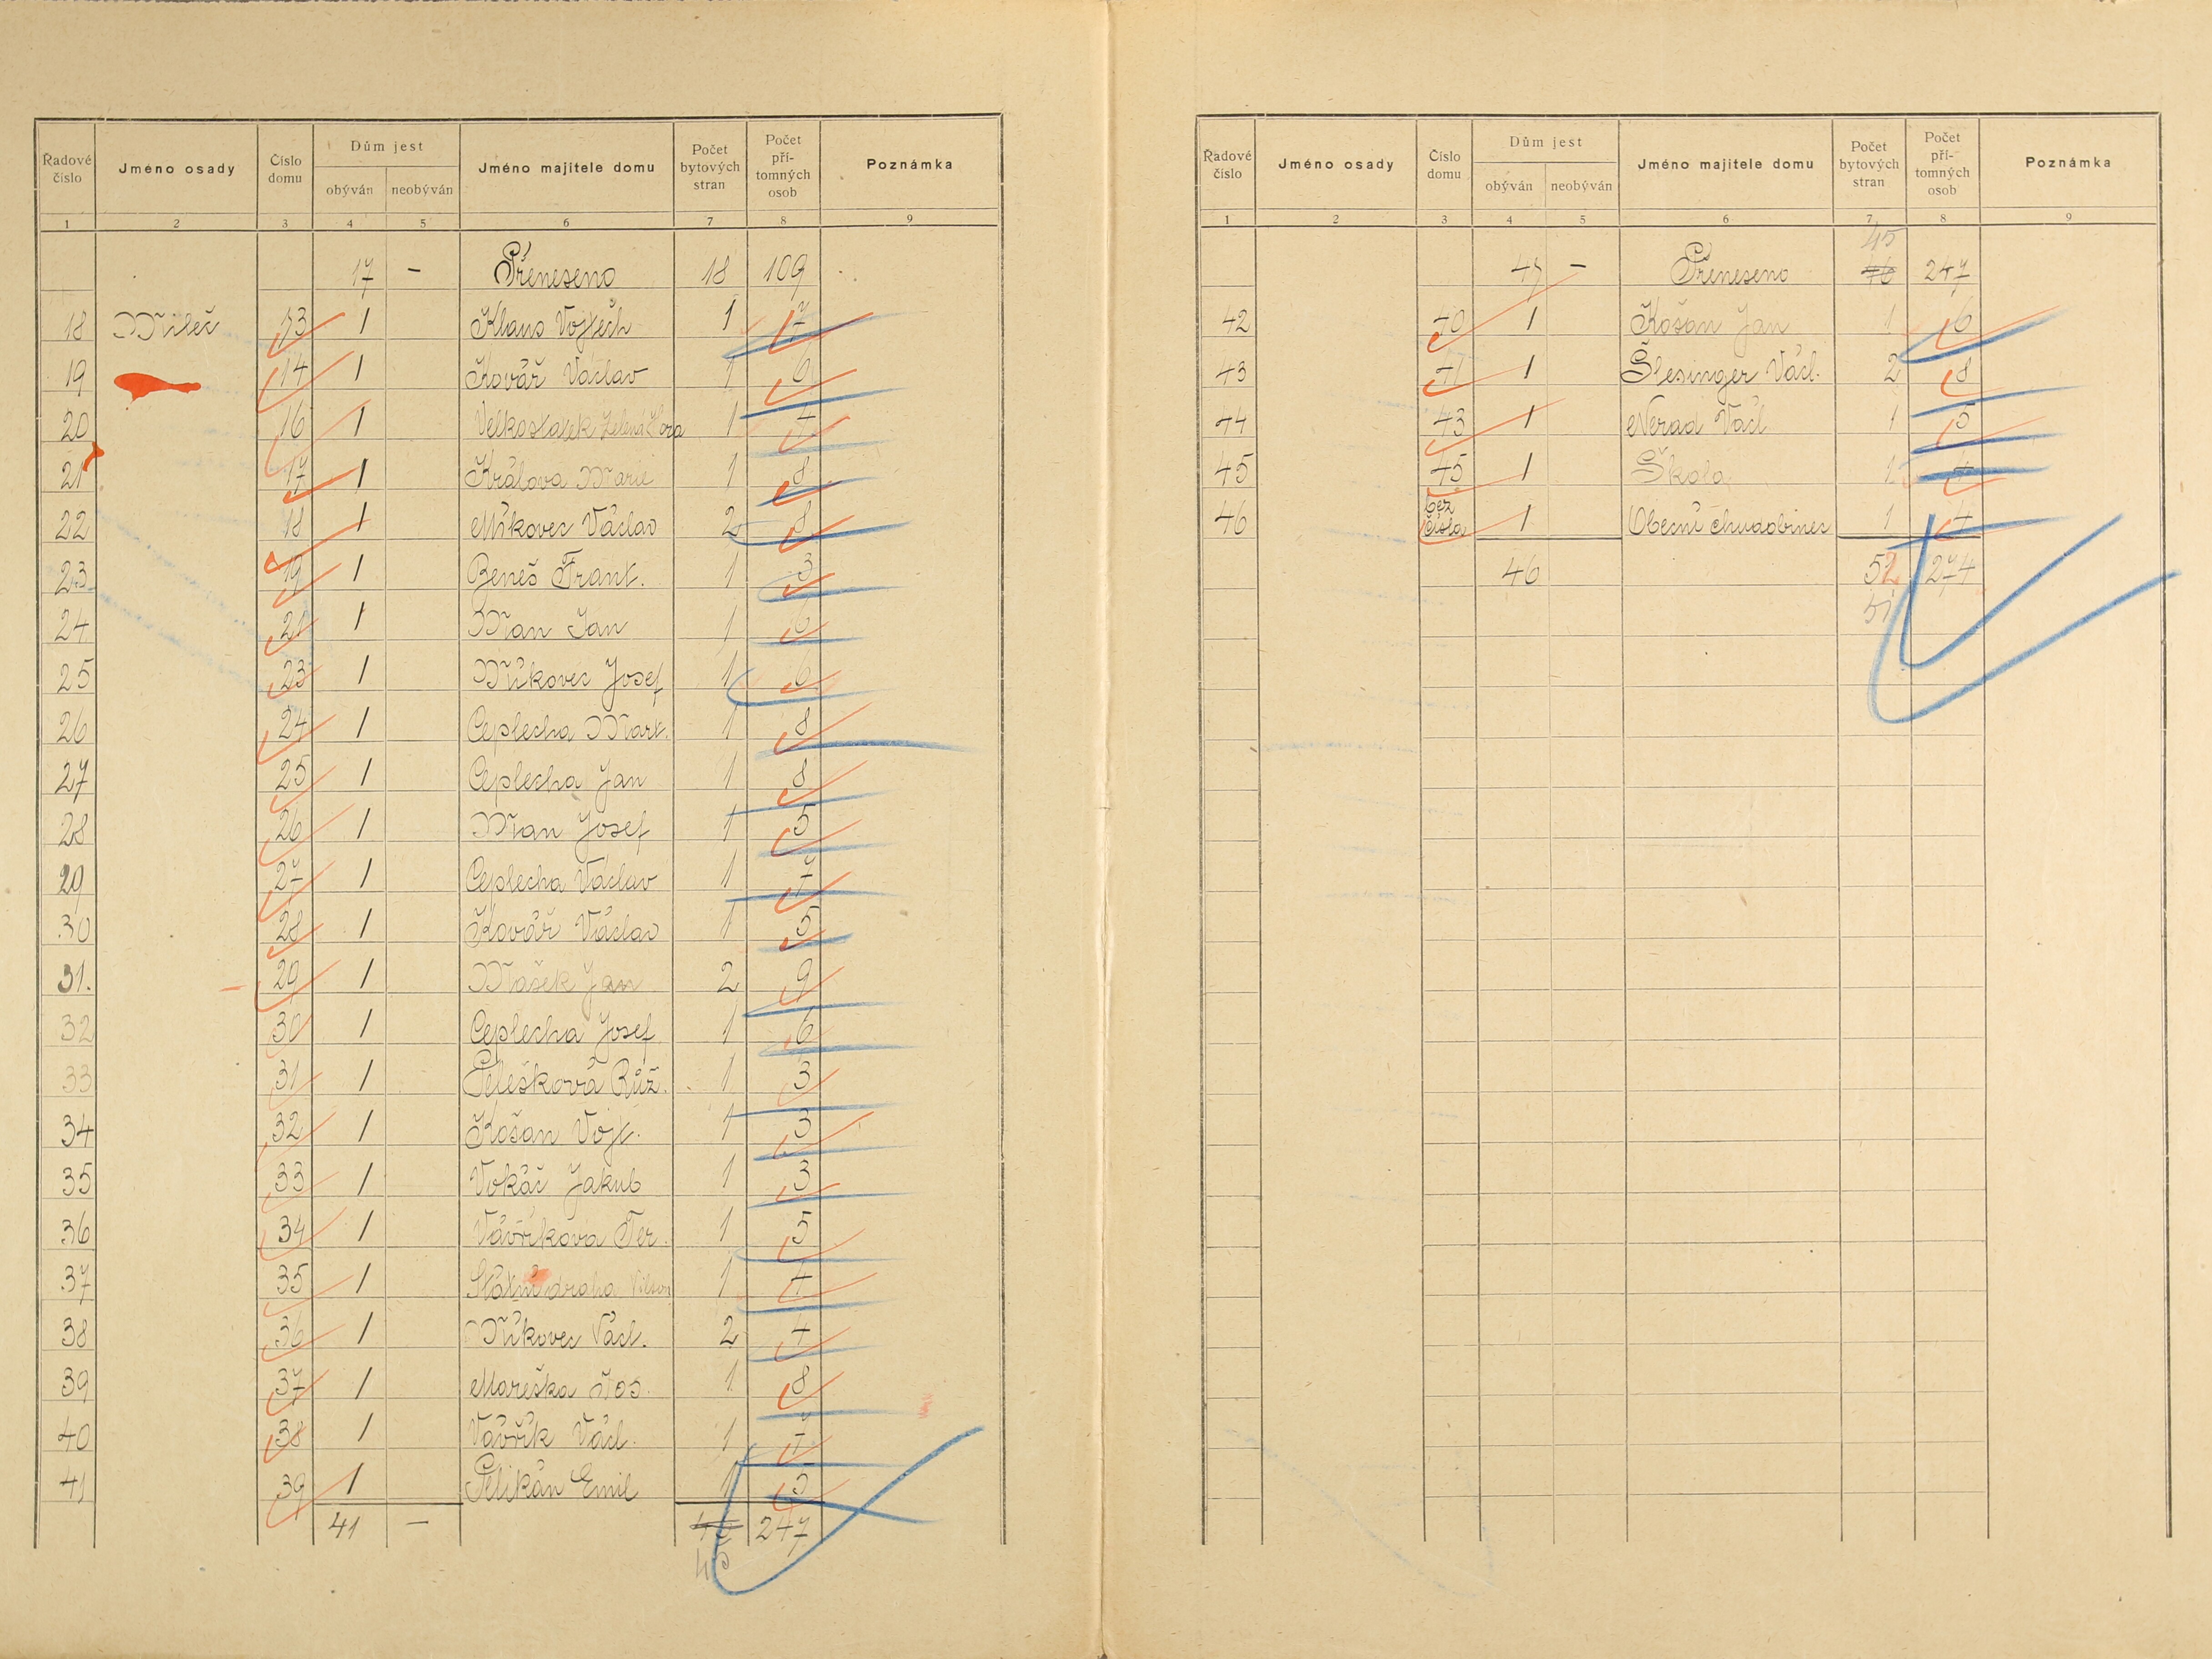 Řadové číslo | Jméno osady | Číslo domu | Dům jest obýván | neobýván | Jméno majitele domu | Počet bytových stran | Počet přítomných osob | Poznámka
1 2 3 4 5 6 7 8 9
17 – Přeneseno 18 109
18 Mileč 13 1 Klaus Vojtěch 1 7
19 14 1 Kovář Václav 1 6
20 16 1 Velkostatek Zelená Hora 1 4
21 17 1 Králova Marie 1 8
22 18 1 Míkovec Václav 2 8
23 19 1 Beneš Frant. 1 3
24 21 1 Man Jan 1 6
25 23 1 Míkovec Josef 1 6
26 24 1 Ceplecha Mart. 1 8
27 25 1 Ceplecha Jan 1 8
28 26 1 Man Josef 1 5
29 27 1 Ceplecha Václav 1 7
30 28 1 Kovář Václav 1 5
31. 29 1 Mašek Jan 2 9
32 30 1 Ceplecha Josef 1 6
33 31 1 Pelešková Růž. 1 3
34 32 1 Košan Vojt. 1 3
35 33 1 Vokáč Jakub 1 3
36 34 1 Vavříkova Ter. 1 5
37 35 1 Státní draha 1 4
38 36 1 Míkovec Václ. 2 4
39 37 1 Mareška Jos. 1 8
40 38 1 Vavřík Václ. 1 7
41 39 1 Pelikán Emil 1 5
41 – 247
45
Řadové číslo | Jméno osady | Číslo domu | Dům jest obýván | neobýván | Jméno majitele domu | Počet bytových stran | Počet přítomných osob | Poznámka
1 2 3 4 5 6 7 8 9
45
– Přeneseno 46 247
42 40 1 Košan Jan 1 6
43 41 1 Šlesinger Václ. 2 8
44 43 1 Nerad Václ. 1 5
45 45 1 Škola 1 4
46 bez čísla 1 Obecní chudobinec 1 4
46 52 274
51